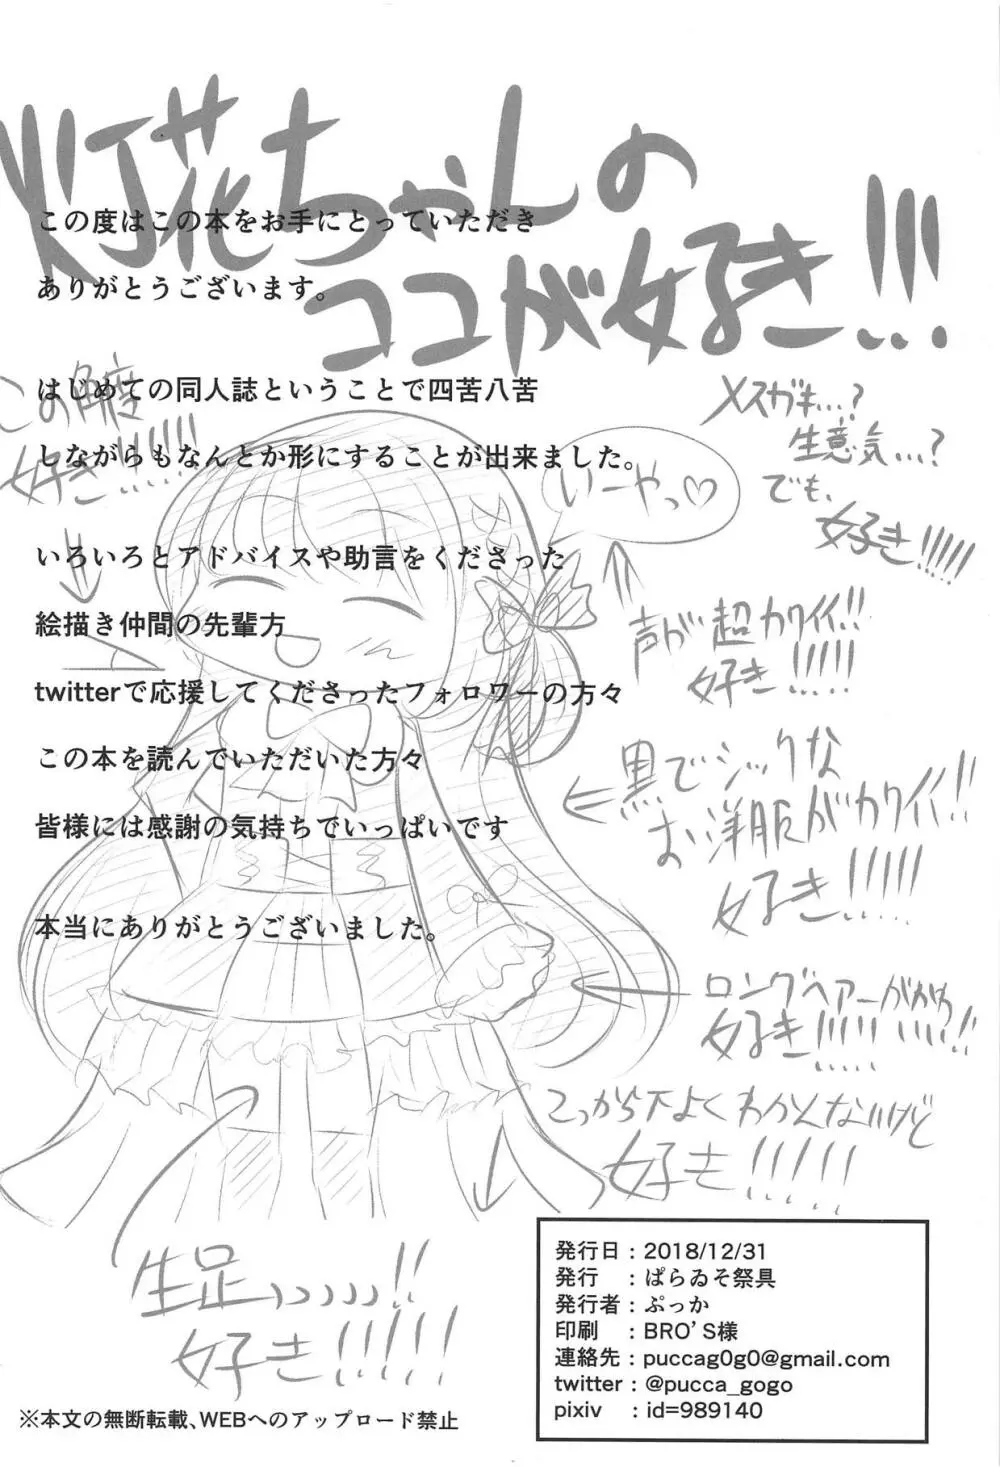 灯花ちゃんの
ココが好き!!!
この度はこの本をお手にとっていただき
ありがとうございます。
はじめての同人誌ということで四苦八苦
しながらもなんとか形にすることが出来ました。
いろいろとアドバイスや助言をくださった
絵描き仲間の先輩方
twitterで応援してくださったフォロワーの方々
この本を読んでいただいた方々
皆様には感謝の気持ちでいっぱいです
本当にありがとうございました。
この角度
好き!!!!!
いーやっ♡
メスガキ...?
生意気...?
でも、
好き!!!!!
声が超カワイイ!!
好き!!!!!
黒でシックな
お洋服がカワイイ!!
好き!!!!!
ロングヘアーがかわ
いい!!
好き!!!!!
こっから下よくわかんないけど
好き!!!!!
生足ぃぃぃぃぃ!!
好き!!!!!
発行日：2018/12/31
発行　：ぱらゐそ祭具
発行者：ぷっか
印刷　：BRO'S様
連絡先：puccag0g0@gmail.com
twitter：@pucca_gogo
pixiv　：id=989140
※本文の無断転載、WEBへのアップロード禁止